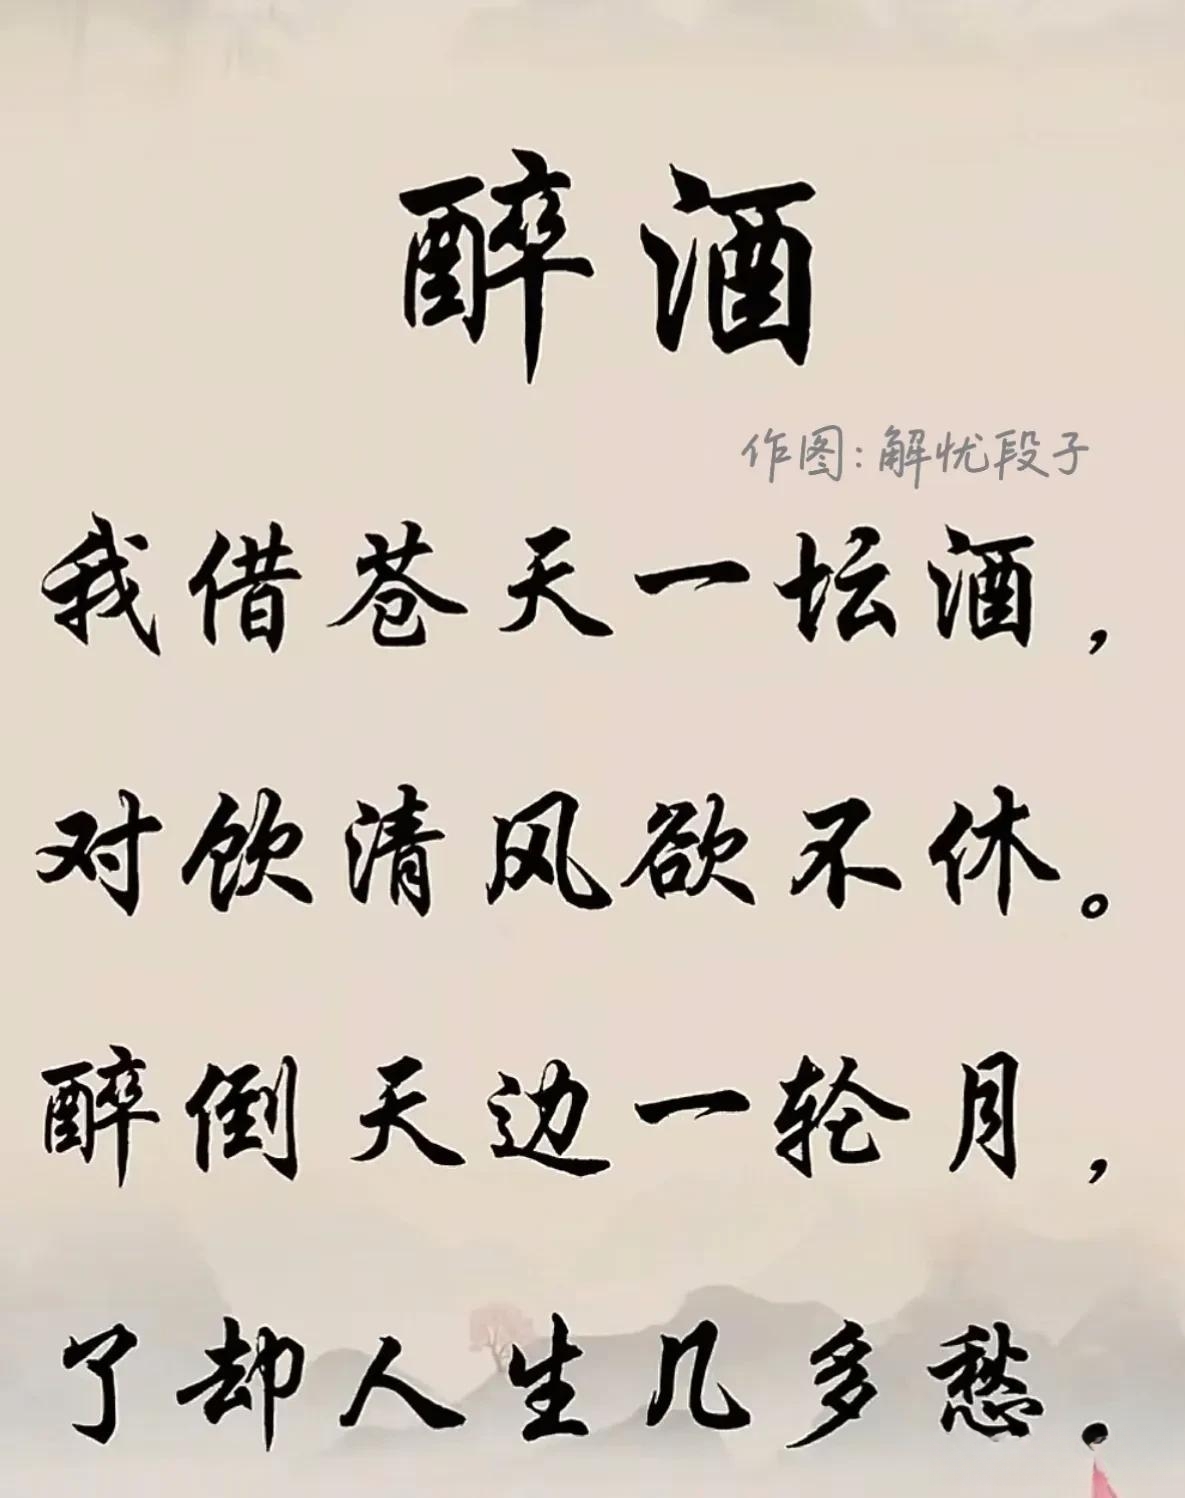 醉酒
作图:解忧段子
我借苍天一坛酒，
对饮清风欲不休。
醉倒天边一轮月，
了却人生几多愁.